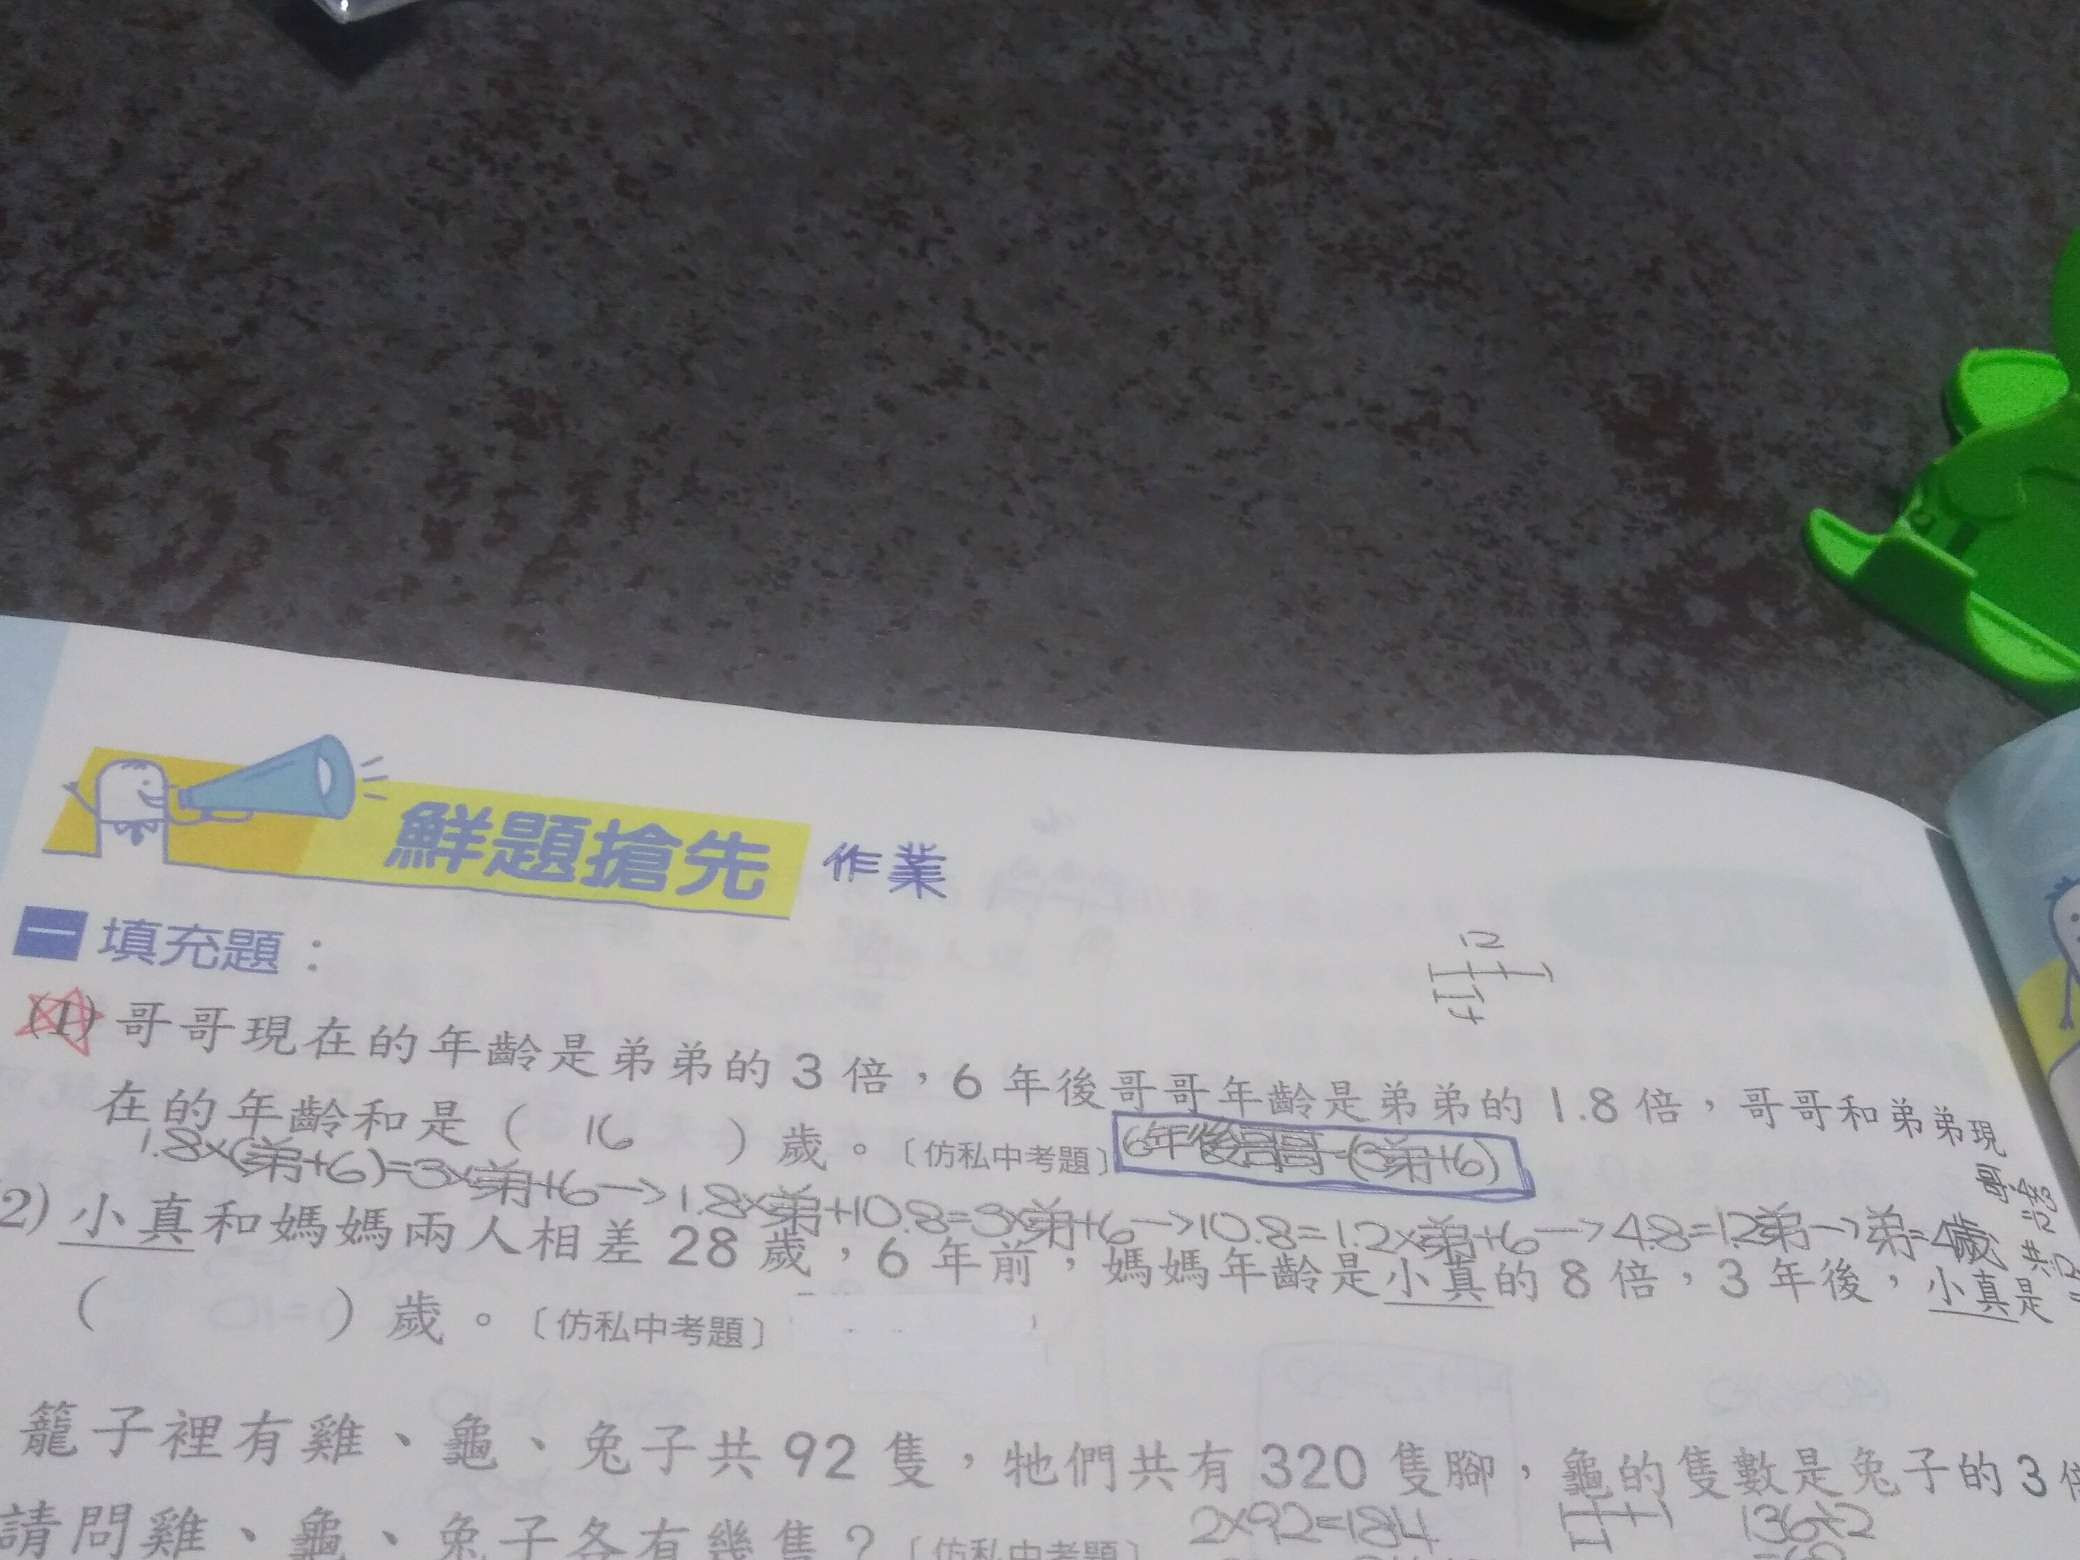 鮮題搶先 作業
一 填充題：
12
4
(1) 哥哥現在的年齡是弟弟的 3 倍，6 年後哥哥年齡是弟弟的 1.8 倍，哥哥和弟弟現
在的年齡和是（ 16 ）歲。〔仿私中考題〕 6年後哥哥=(3弟+6)
1.8×(弟+6)=3×弟+6→1.8×弟+10.8=3×弟+6→10.8=1.2×弟+6→4.8=1.2弟→弟=4歲
2) 小真和媽媽兩人相差 28 歲，6 年前，媽媽年齡是小真的 8 倍，3 年後，小真是
（ ）歲。〔仿私中考題〕
籠子裡有雞、龜、兔子共 92 隻，牠們共有 320 隻腳，龜的隻數是兔子的 3 倍
2×92=184
136÷2
請問雞、龜、兔子各有幾隻？〔仿私中考題〕